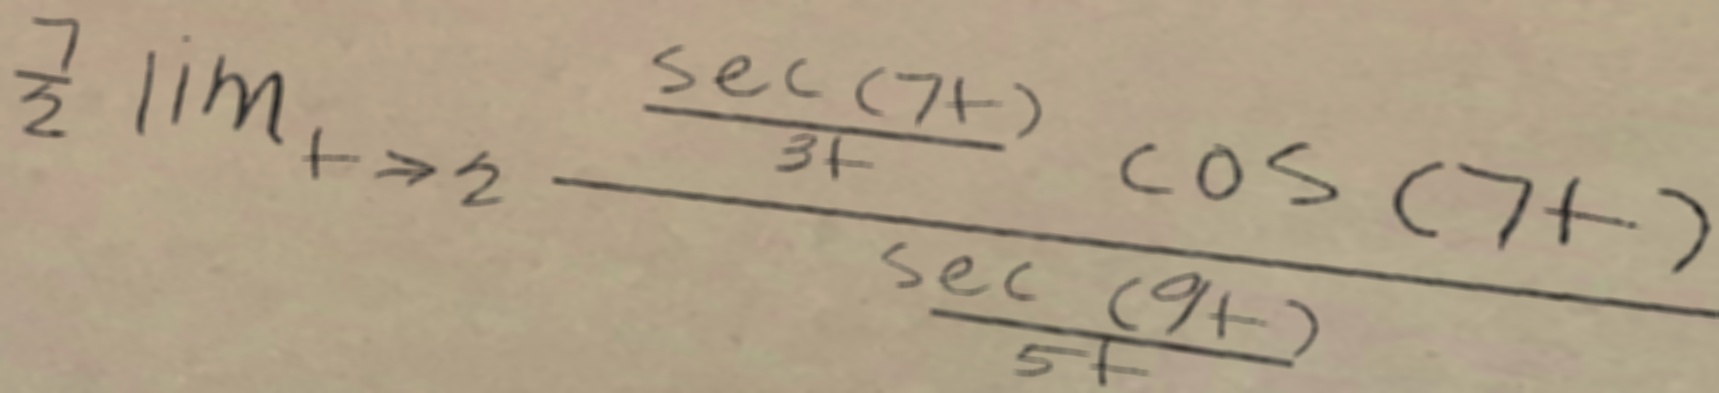 \frac{7}{2} \lim_{t \to 2} \frac{\frac{\sec(7t)}{3t} \cos(7t)}{\frac{\sec(9t)}{5t}}